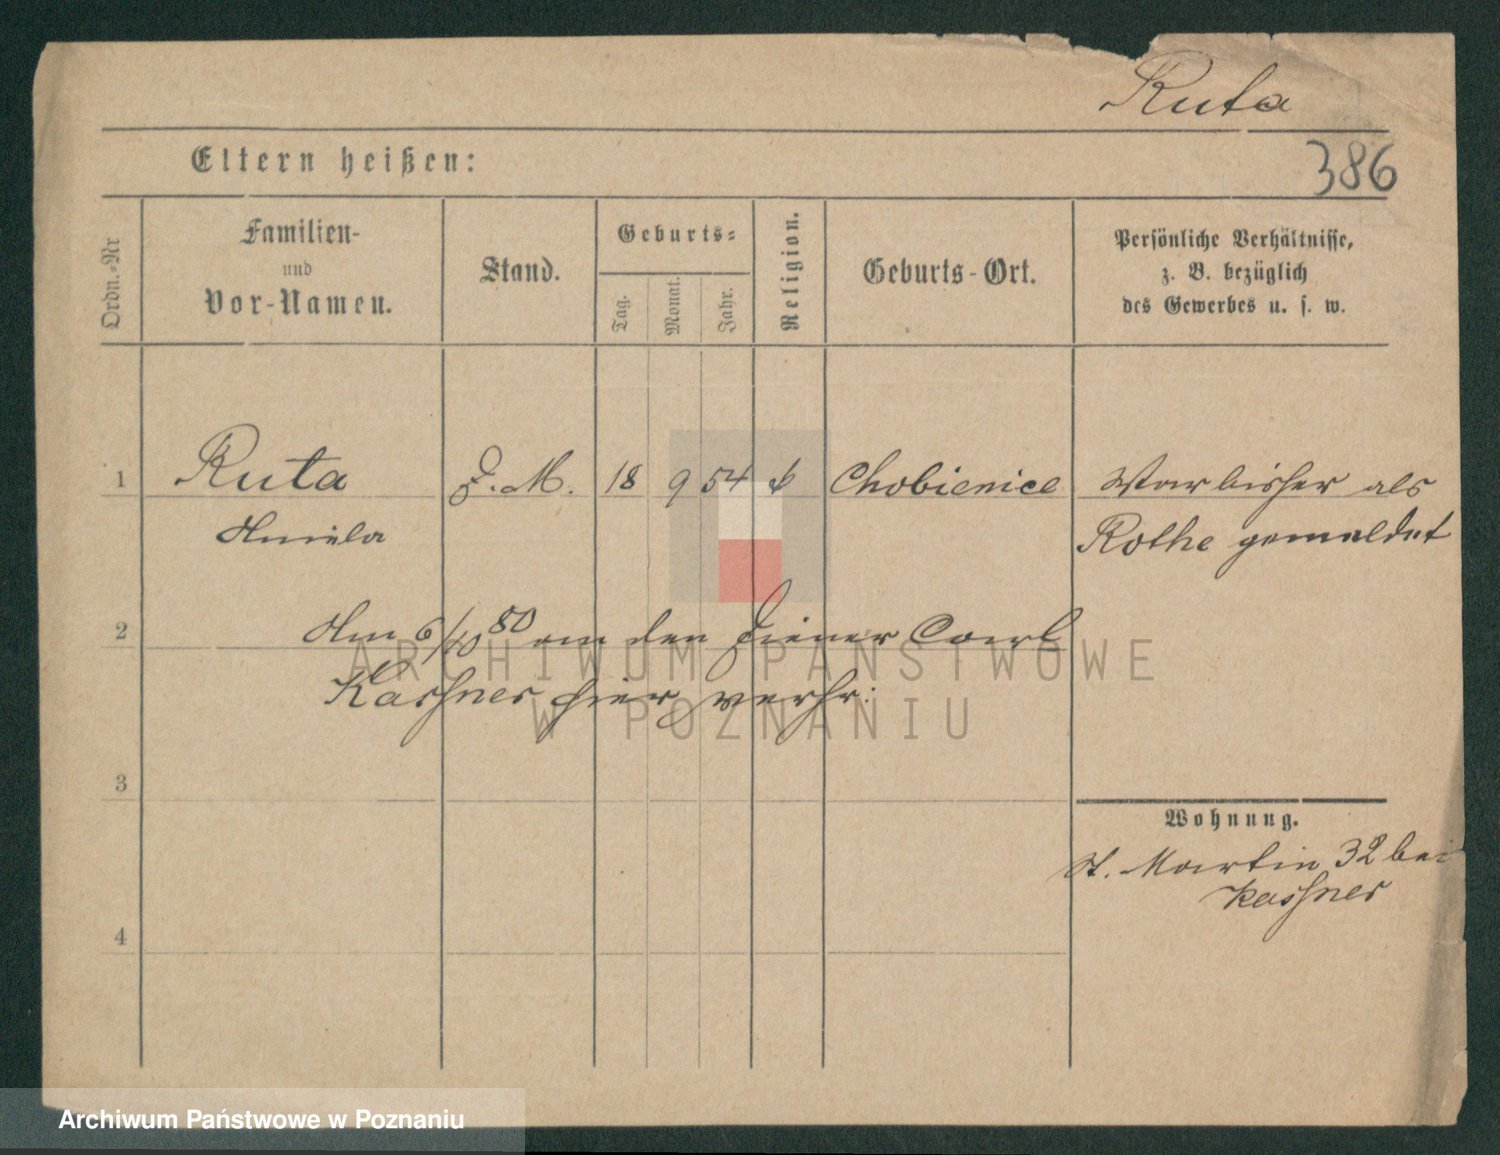 Ruta
Eltern heißen:
386
Ordn.-Nr
Familien-
und
Vor-Namen.
Stand.
Geburts-
Tag.
Monat.
Jahr.
Religion.
Geburts-Ort.
Persönliche Verhältnisse,
z. B. bezüglich
des Gewerbes u. s. w.
1 Ruta D. M. 18 9 54 k Chobienice War bisher als
Amiela Rothe gemeldet
2 Am 6/10 80 an den Diener Carl
Kassner hier verhr:
3
Wohnung.
St. Martin 32 bei
Kassner
4
ARCHIWUM PAŃSTWOWE
W POZNANIU
Archiwum Państwowe w Poznaniu